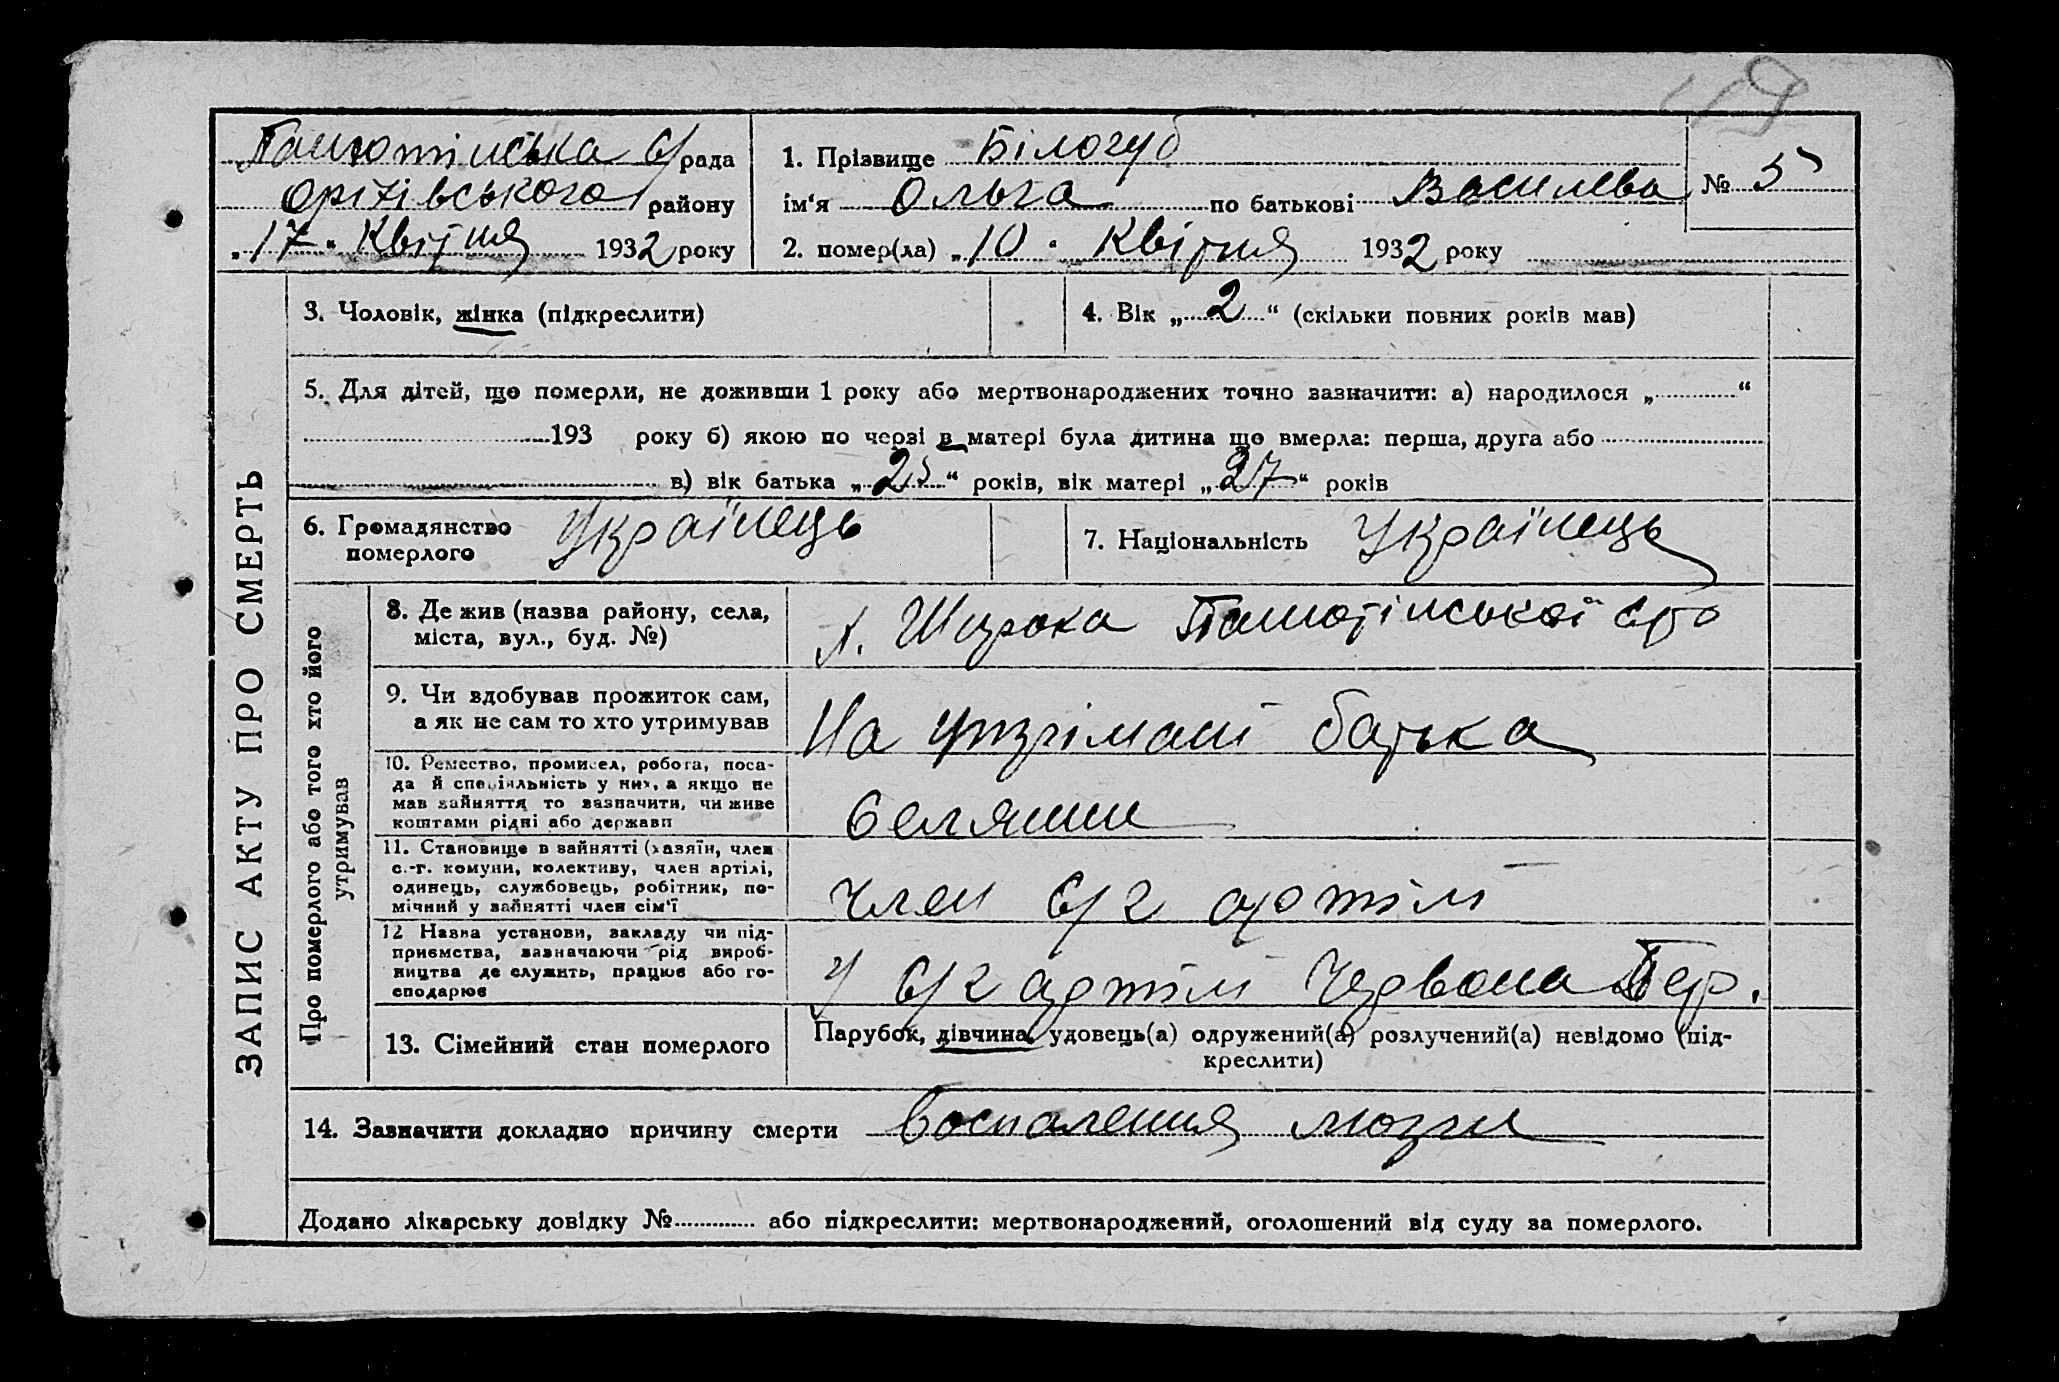 49
Панютінська С/рада
Орхівського району
„17" Квітня 1932 року
1. Прізвище Білогуб
ім'я Ольга по батькові Василева
№ 5
2. помер(ла) „10" Квітня 1932 року
ЗАПИС АКТУ ПРО СМЕРТЬ
3. Чоловік, жінка (підкреслити)
4. Вік „2" (скільки повних років мав)
5. Для дітей, що померли, не доживши 1 року або мертвонароджених точно зазначити: а) народилося „ "
193 року б) якою по черзі в матері була дитина що вмерла: перша, друга або
в) вік батька „25" років, вік матері „27" років
6. Громадянство
померлого Українець
7. Національність Українець
Про померлого або того хто його
утримував
8. Де жив (назва району, села,
міста, вул., буд. №)
х. Широка Панютінської с/р
9. Чи здобував прожиток сам,
а як не сам то хто утримував
На утрімані батька
10. Ремество, промисел, робота, поса-
да й спеціяльність у них, а якщо не
мав зайняття то зазначити, чи живе
коштами рідні або держави
Селянин
11. Становище в зайнятті (хазяїн, член
с.-г. комуни, колективу, член артілі,
одинець, службовець, робітник, по-
мічний у зайнятті член сім'ї
член С/г артілі
12 Назва установи, закладу чи під-
приємства, зазначаючи рід вироб-
ництва де служить, працює або го-
сподарює
У С/г артілі Червона Пер.
13. Сімейний стан померлого
Парубок, дівчина, удовець(а) одружений(а) розлучений(а) невідомо (під-
креслити)
14. Зазначити докладно причину смерти Воспаления мозги
Додано лікарську довідку № або підкреслити: мертвонароджений, оголошений від суду за померлого.